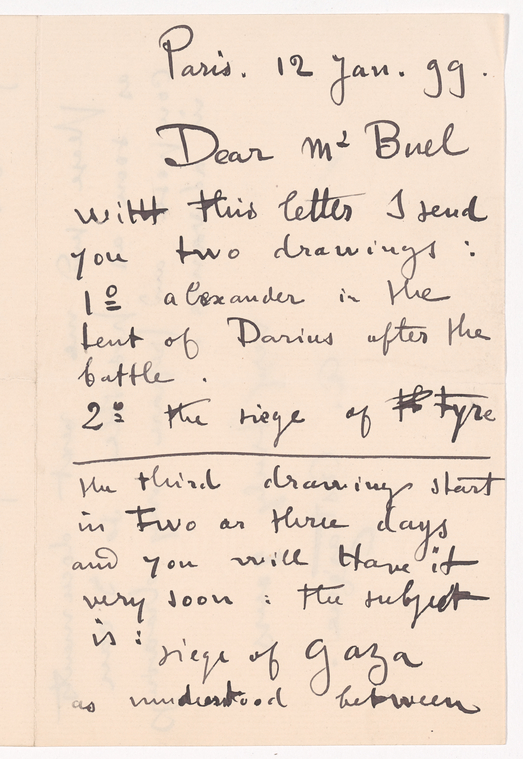 Paris. 12 Jan. 99.
Dear Mr Buel
with this letter I send
you two drawings :
1º alexander in the
tent of Darius after the
battle.
2º the siege of Tyre
the third drawing start
in Two or three days
and you will Have it
very soon : the subject
is : siege of gaza
as understood between